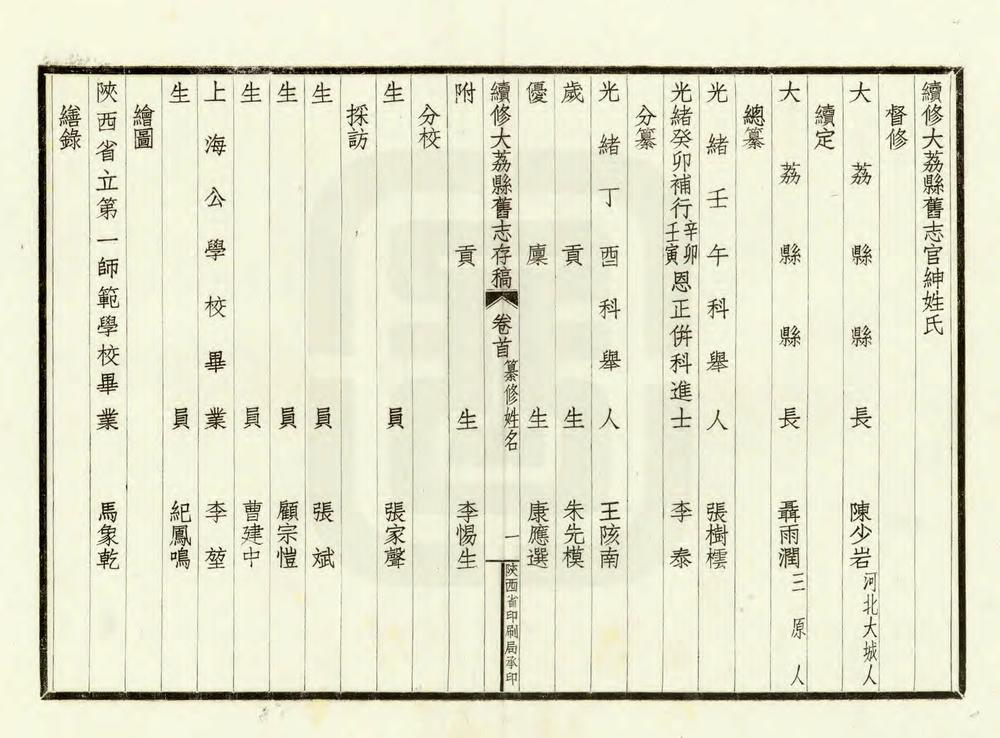 續修大荔縣舊志官紳姓氏
督修
大荔縣縣長 陳少岩 河北大城人
續定
大荔縣縣長 聶雨潤 三原人
總纂
光緒壬午科舉人 張樹橒
光緒癸卯補行辛卯壬寅恩正併科進士 李泰
分纂
光緒丁酉科舉人 王陔南
歲貢生 朱先模
優廩生 康應選
續修大荔縣舊志存稿 卷首 纂修姓名 一 陝西省印刷局承印
附貢生 李惕生
分校
生員 張家聲
採訪
生員 張斌
生員 顧宗愷
生員 曹建中
上海公學校畢業 李堃
生員 紀鳳鳴
繪圖
陝西省立第一師範學校畢業 馬象乾
繕錄